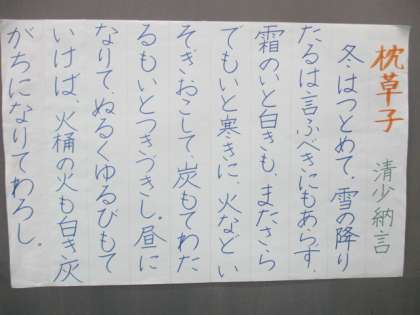 枕草子 清少納言
冬はつとめて。雪の降り
たるは言ふべきにもあらず、
霜のいと白きも、またさら
でもいと寒きに、火などい
そぎおこして、炭もてわた
るもいとつきづきし。昼に
なりて、ぬるくゆるびもて
いけば、火桶の火も白き灰
がちになりてわろし。